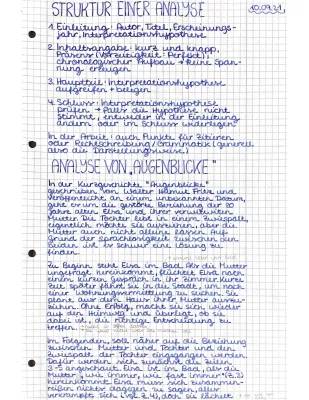 STRUKTUR EINER ANALYSE
10.09.21
1. Einleitung: Autor, Titel, Erscheinungs-
jahr, Interpretationshypothese
2. Inhaltsangabe: kurz und knapp,
Präsens (Vorzeitigkeit: Perfekt),
chronologischer Aufbau → keine Span-
nung erzeugen
3. Hauptteil: Interpretationshypothese
aufgreifen + belegen
4. Schluss: Interpretationshypothese
prüfen → Falls die Hypothese nicht
stimmt, entweder in der Einleitung
ändern oder im Schluss widerlegen
In der Arbeit: auch Punkte für Zitieren
oder Rechtschreibung/Grammatik (generell
also die Darstellungsweise)
ANALYSE VON „AUGENBLICKE"
In der Kurzgeschichte "Augenblicke"
geschrieben von Walter Helmut Fritz und
veröffentlicht an einem unbekannten Datum,
geht es um die gestörte Beziehung der 20
Jahre alten Elsa und ihrer verwitweten
Mutter. Die Tochter lebt in einem Zwiespalt,
eigentlich möchte sie ausziehen, aber die
Mutter auch nicht alleine lassen. Auf-
Grund der Sprachlosigkeit zwischen den
beiden, ist es schwer eine Lösung zu
finden.
Zu Beginn steht Elsa im Bad. Als die Mutter
ungefragt hereinkommt, flüchtet Elsa nach
einem kurzen Gespräch in ihr Zimmer. Kurze
Zeit später fährt sie in die Stadt, um nach
einer Wohnungsvermittlung zu suchen. Sie
plant aus dem Hause ihrer Mutter auszu-
ziehen. Ohne Erfolg, macht sie sich wieder
auf den Heimweg und überlegt, ob sie
dabei ist, die richtige Entscheidung zu
treffen.
Im Folgenden, soll näher auf die Beziehung
zwischen Mutter und Tochter und den
Zwiespalt der Tochter eingegangen werden
Dafür werden sich zunächst die Zeilen
3-5 angeschaut. Elsa ist im Bad, als die
Mutter „wie immer, wie fast immer" (Z.2)
hereinkommt. Elsa muss sich zusammen-
reißen nichts dagegen zu sagen, alles
verkrampft sich (vgl. Z.4), doch sie lächelt